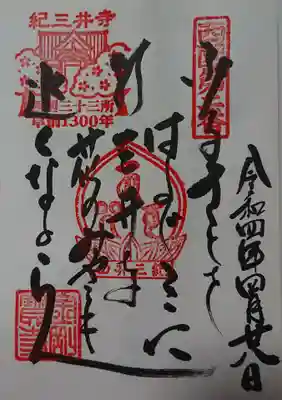 令和四年四月廿八日
西国第二番
ふるさとを
はる〲こゝに
紀三井寺
花の都も
近くなるらん
紀三井寺
草創1300年